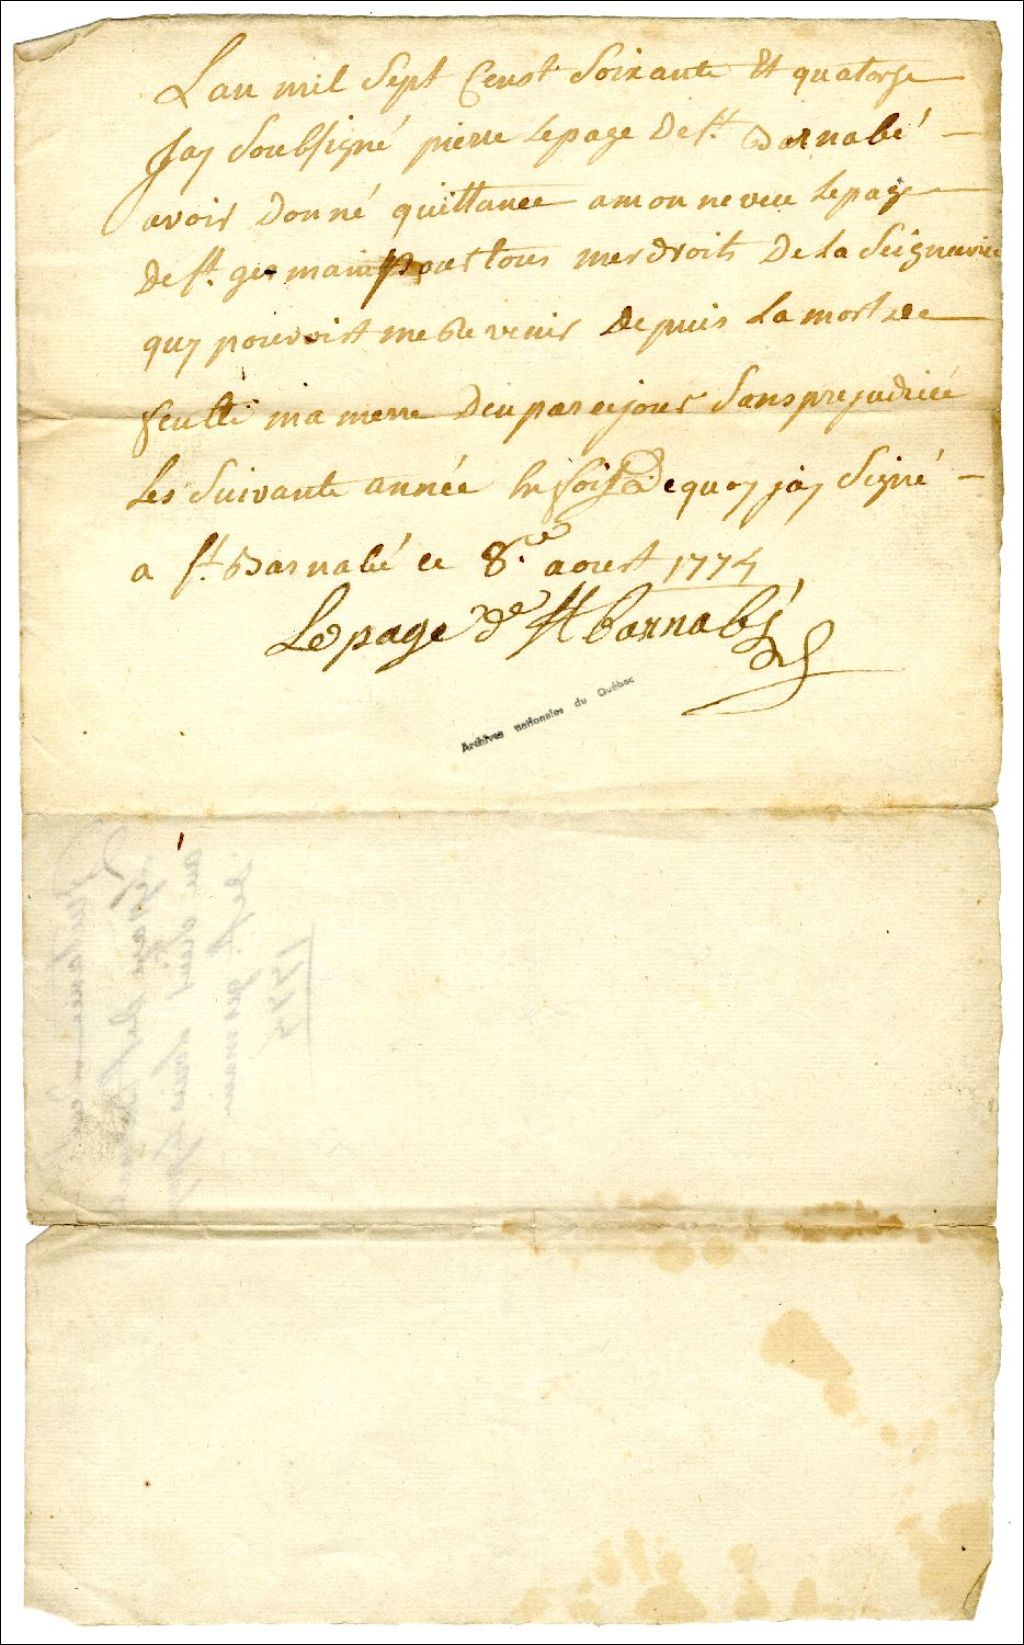 Lan mil Sept Censt Soixante Et quatorze
Jay Soubsigné pierre Lepage De St Barnabé
avoir Donné quittance amon neveu Lepage
De St. germain pour tous mes droits De La Seigneurie
quy pouvoist me Revenir Depuis La mort de
feutte ma mere Deu par ce jour Sans prejudicié
Les Suivante année En foist De quoy jay Signé
a St. Barnabé ce 8.e aoust 1774
Lepage de St barnabé
Archives nationales du Québec